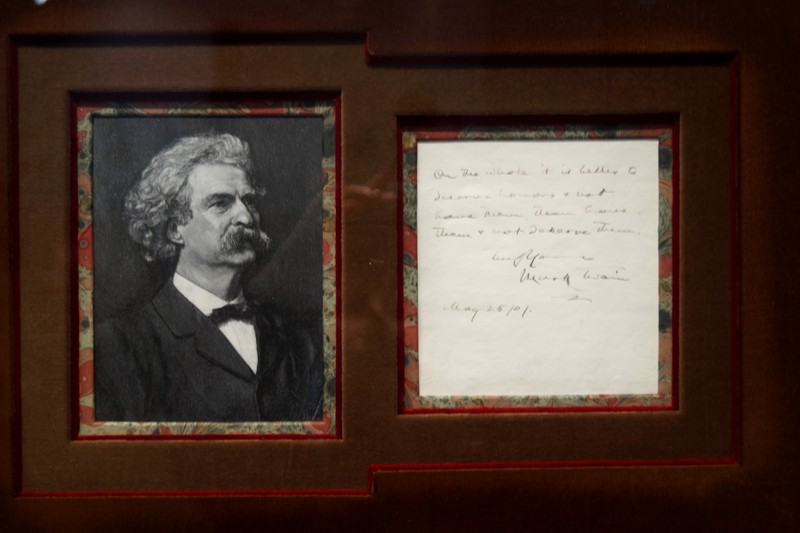 On the whole it is better to
deserve honors & not
have them than have
them & not deserve them.
Truly Yours
Mark Twain
May 25/01.